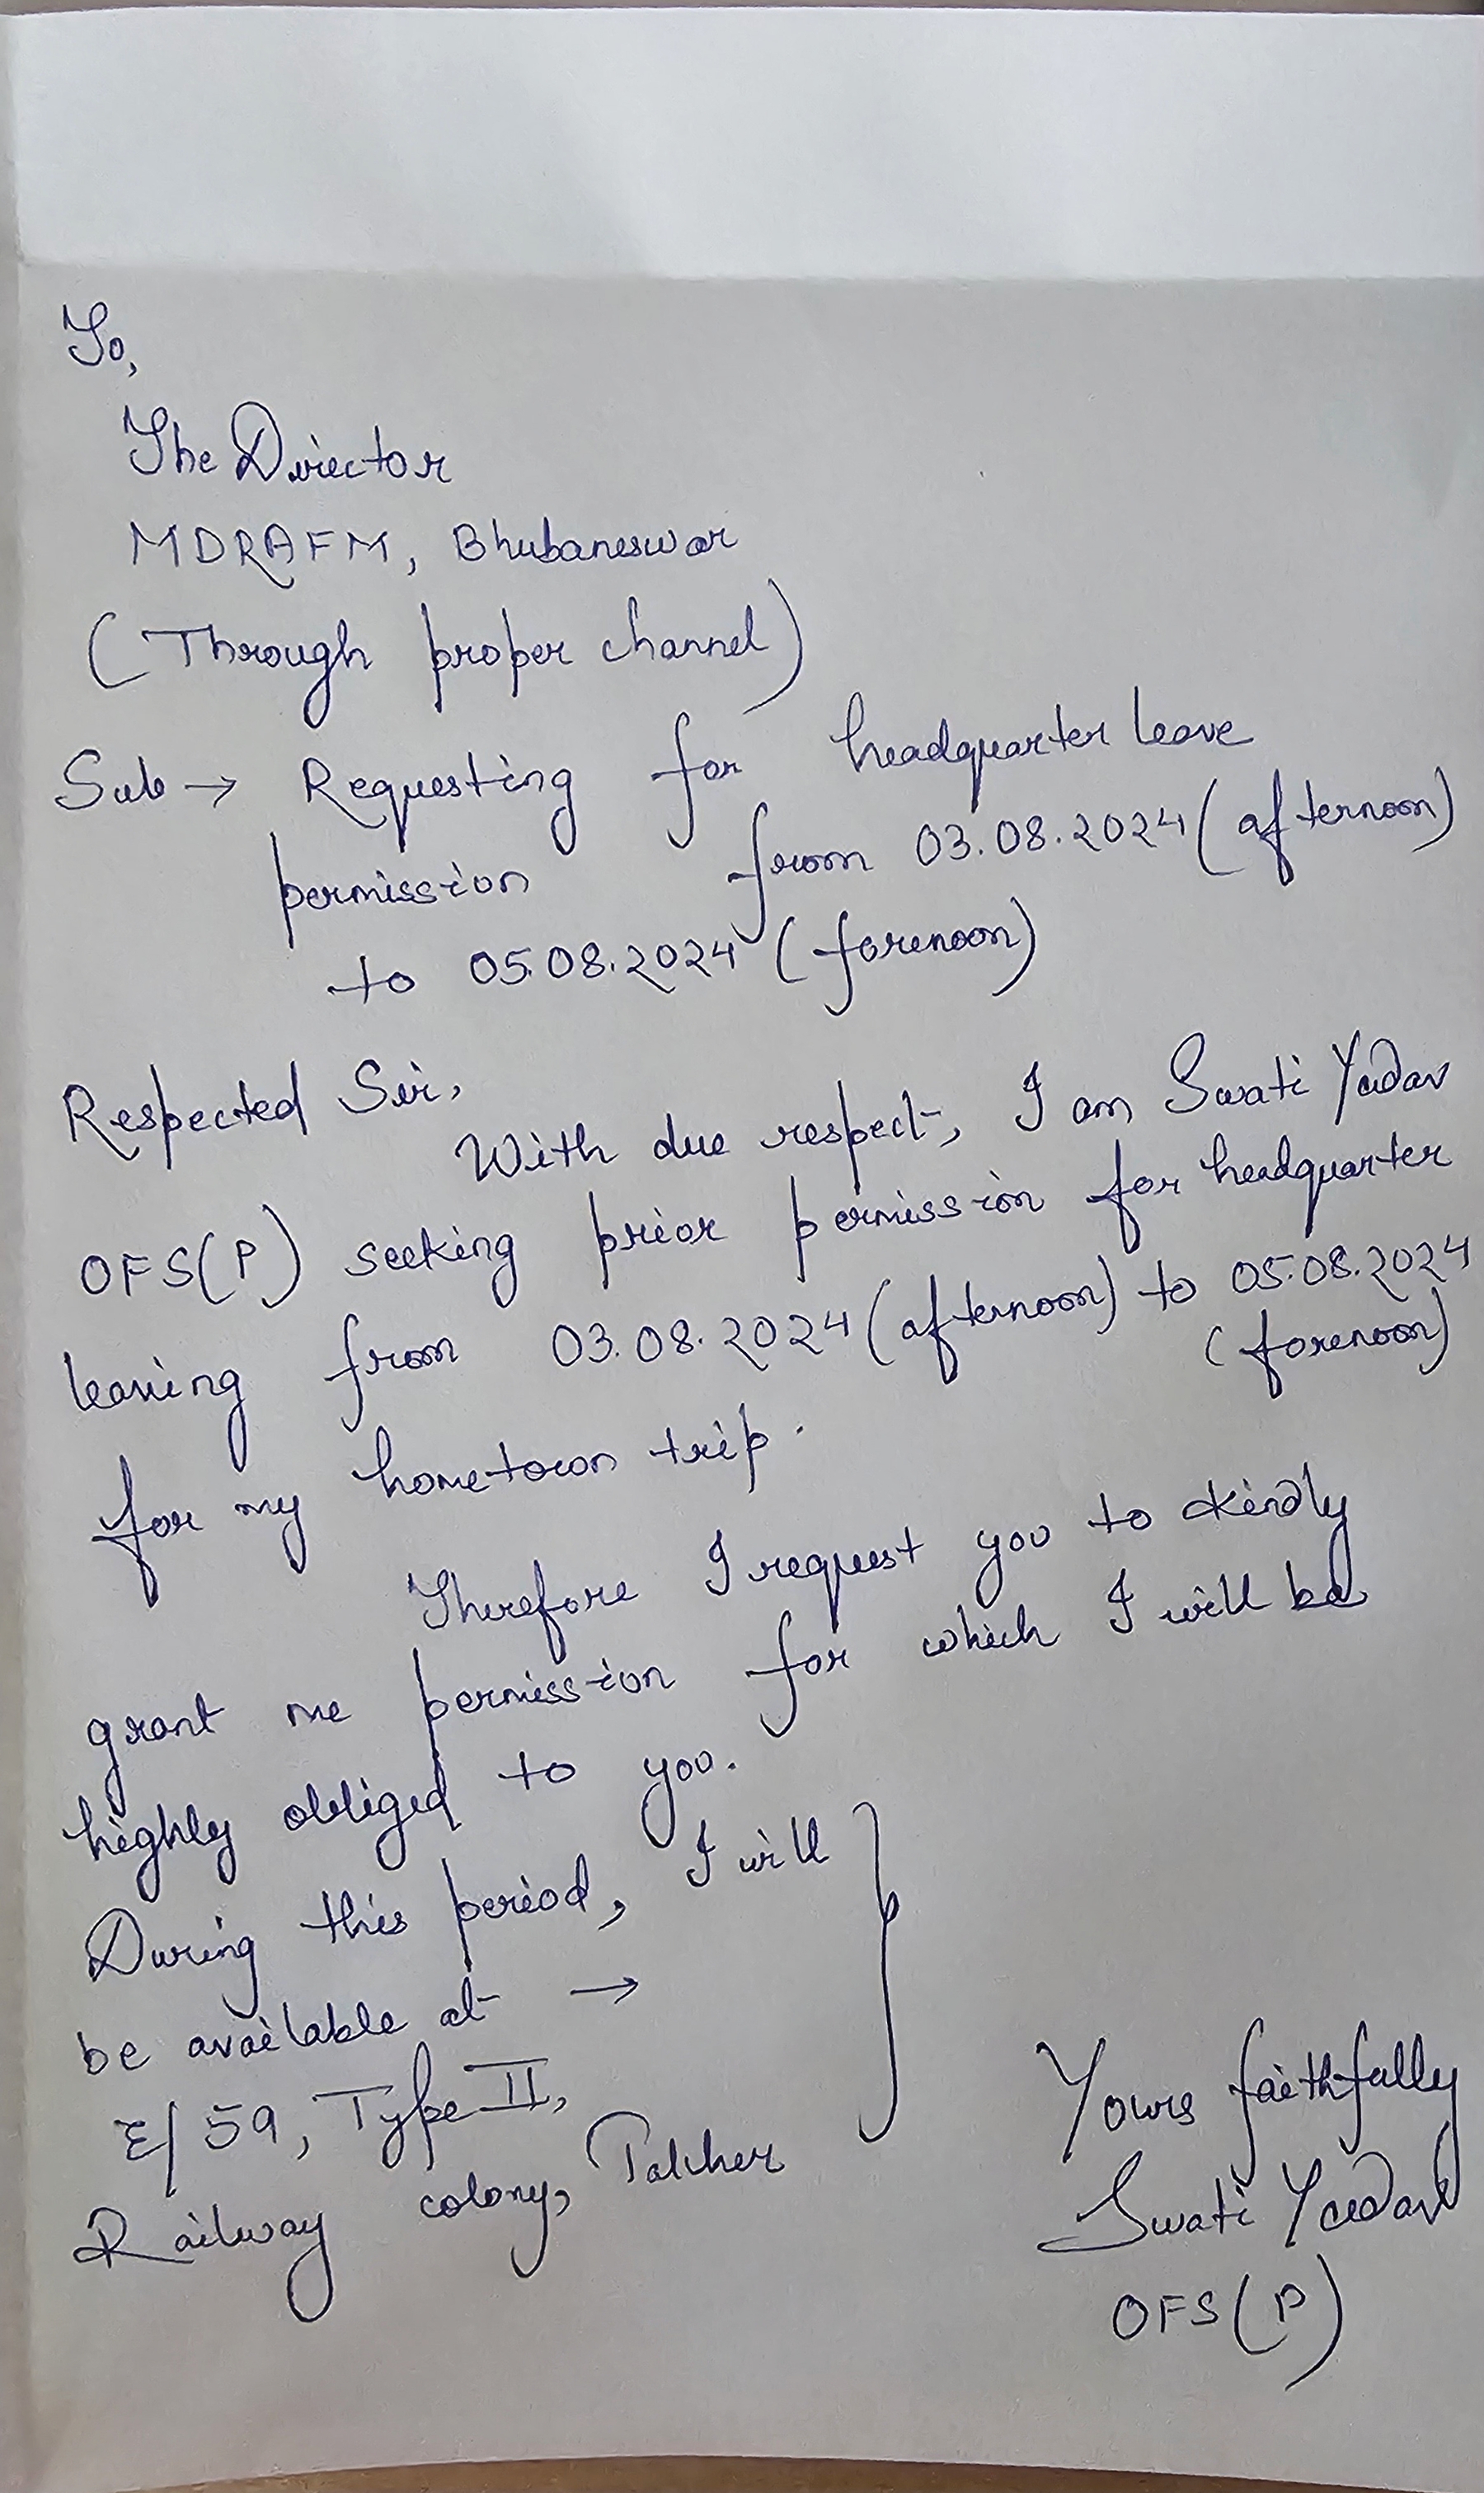 To,
The Director
MDRAFM, Bhubaneswar
(Through proper channel)
Sub → Requesting for headquarter leave
permission from 03.08.2024 (afternoon)
to 05.08.2024 (forenoon)
Respected Sir,
With due respect, I am Swati Yadav
OFS(P) seeking prior permission for headquarter
leaving from 03.08.2024 (afternoon) to 05.08.2024
(forenoon)
for my hometown trip.
Therefore I request you to kindly
grant me permission for which I will be
highly obliged to you.
During this period, I will
be available at →
E/59, Type II,
Railway colony, Talcher
Yours faithfully
Swati Yadav
OFS(P)